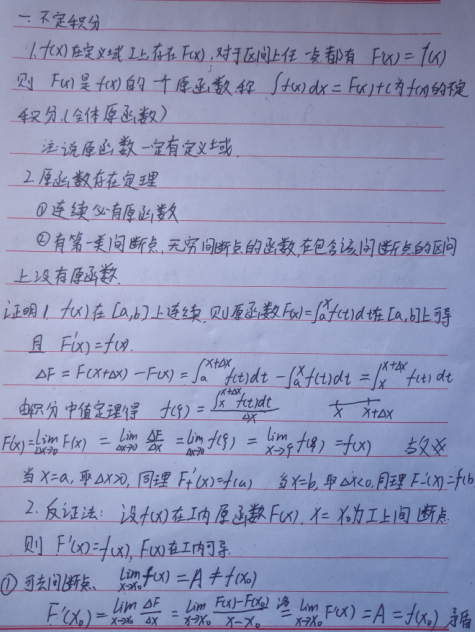 一.不定积分
1. f(x)在定义域I上存在F(x),对于区间上任一点都有 F'(x)=f(x)
则 F(x)是f(x)的一个原函数 称 ∫f(x)dx=F(x)+C为f(x)的不定
积分(全体原函数)
注:说原函数一定有定义域.
2.原函数存在定理
①连续必有原函数
②有第一类间断点,无穷间断点的函数,在包含该间断点的区间
上没有原函数.
证明1. f(x)在[a,b]上连续.则原函数F(x)=∫ₐˣf(t)dt在[a,b]上可导
且 F'(x)=f(x).
ΔF=F(x+Δx)-F(x)=∫ₐ^{x+Δx}f(t)dt-∫ₐˣf(t)dt=∫ₓ^{x+Δx}f(t)dt
由积分中值定理得 f(ξ)=∫ₓ^{x+Δx}f(t)dt/Δx x x+Δx
F'(x)=lim_{Δx→0}F(x)=lim_{Δx→0}ΔF/Δx=lim_{Δx→0}f(ξ)=lim_{x→ξ}f(ξ)=f(x)
当x=a,取Δx>0,同理F₊'(x)=f(a) 当x=b,取Δx<0,同理F₋'(x)=f(b)
2.反证法:设f(x)在I内原函数F(x),x=x₀为I上间断点
则F'(x)=f(x),F(x)在I内可导.
①可去间断点. lim_{x→x₀}f(x)=A≠f(x₀)
F'(x₀)=lim_{x→x₀}ΔF/Δx=lim_{x→x₀}(F(x)-F(x₀))/(x-x₀) 洛= lim_{x→x₀}F'(x)=A=f(x₀) 矛盾